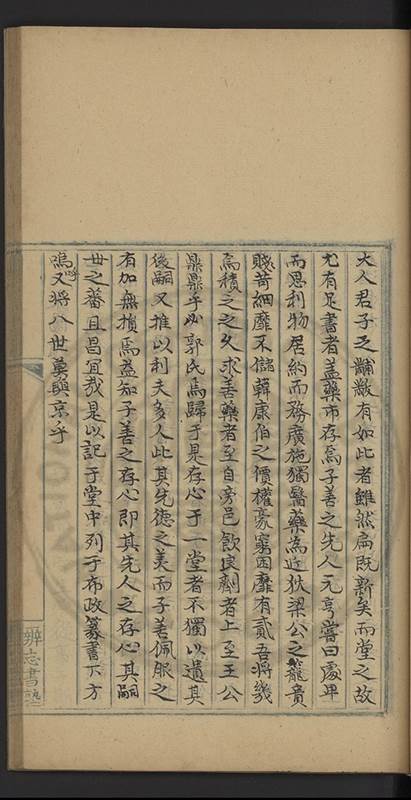 大人君子之黼黻有如此者雖然扁既新矣而堂之故
尤有足書者蓋藥市存焉子善之先人元亨嘗曰處畢
而思利物居約而務廣施獨醫藥為近狄梁公之籠貴
賤苛細靡不儲韓康伯之價權豪窮困靡有貳吾將幾
焉積之之久求善藥者至自旁邑飲良劑者上至王公
鼎鼎乎必郭氏焉歸于是存心于一堂者不獨以遺其
後嗣又推以利夫多人此其先德之美而子善佩服之
有加無損焉蓋知子善之存心即其先人之存心其嗣
世之蕃且昌宜哉是以記于堂中列于布政篆書下方
嗚呼又將八世莫與京乎
辨志書塾